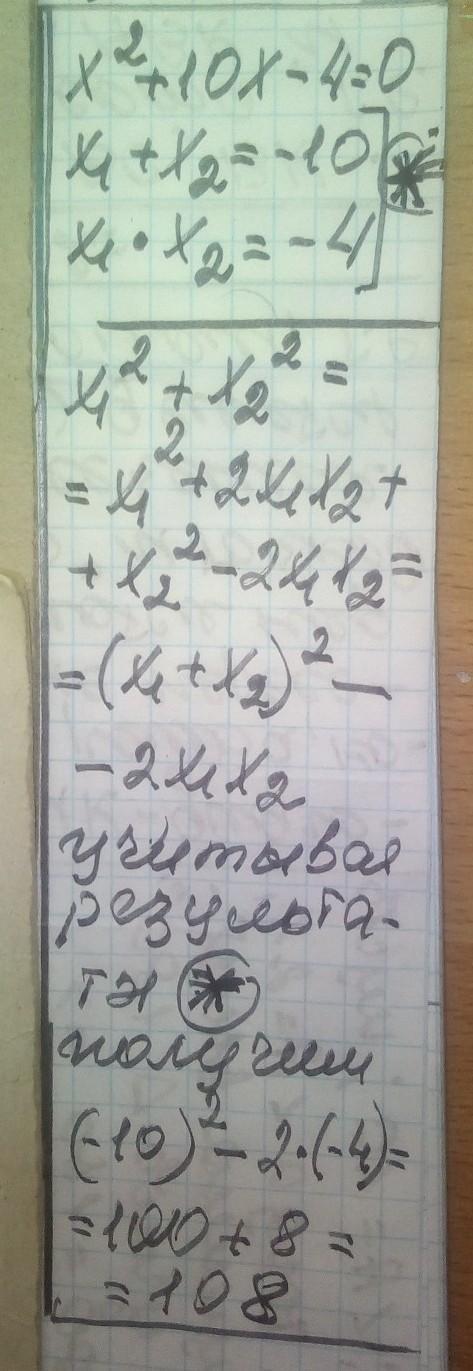 x² + 10x - 4 = 0
x₁ + x₂ = -10
x₁ · x₂ = -4 ] ⊛
x₁² + x₂² =
= x₁² + 2x₁x₂ +
+ x₂² - 2x₁x₂ =
= (x₁ + x₂)² -
- 2x₁x₂
учитывая
результа-
ты ⊛
получим
(-10)² - 2·(-4) =
= 100 + 8 =
= 108